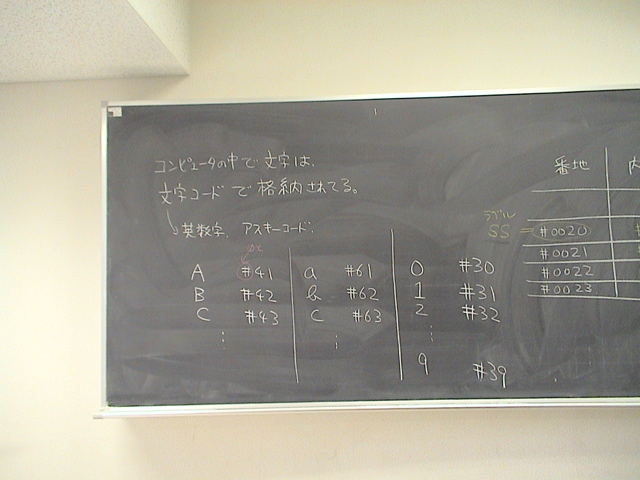 コンピュータの中で文字は、
文字コードで格納されてる。
↳英数字、アスキーコード:
A #41 a #61 0 #30
B #42 b #62 1 #31
C #43 c #63 2 #32
⋮ ⋮ ⋮
9 #39
番地 内
ラベル
SS = #0020
#0021
#0022
#0023